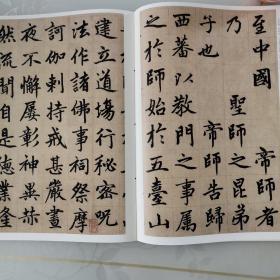 至中國
乃 聖師之昆弟
子也 帝師告歸
西蕃以教門之事属
之於師始於五臺山
建立道場行秘密呪
法作諸佛事祠祭摩
訶伽剌持戒甚嚴晝
夜不懈屢彰神異赫
然流聞自是德業隆